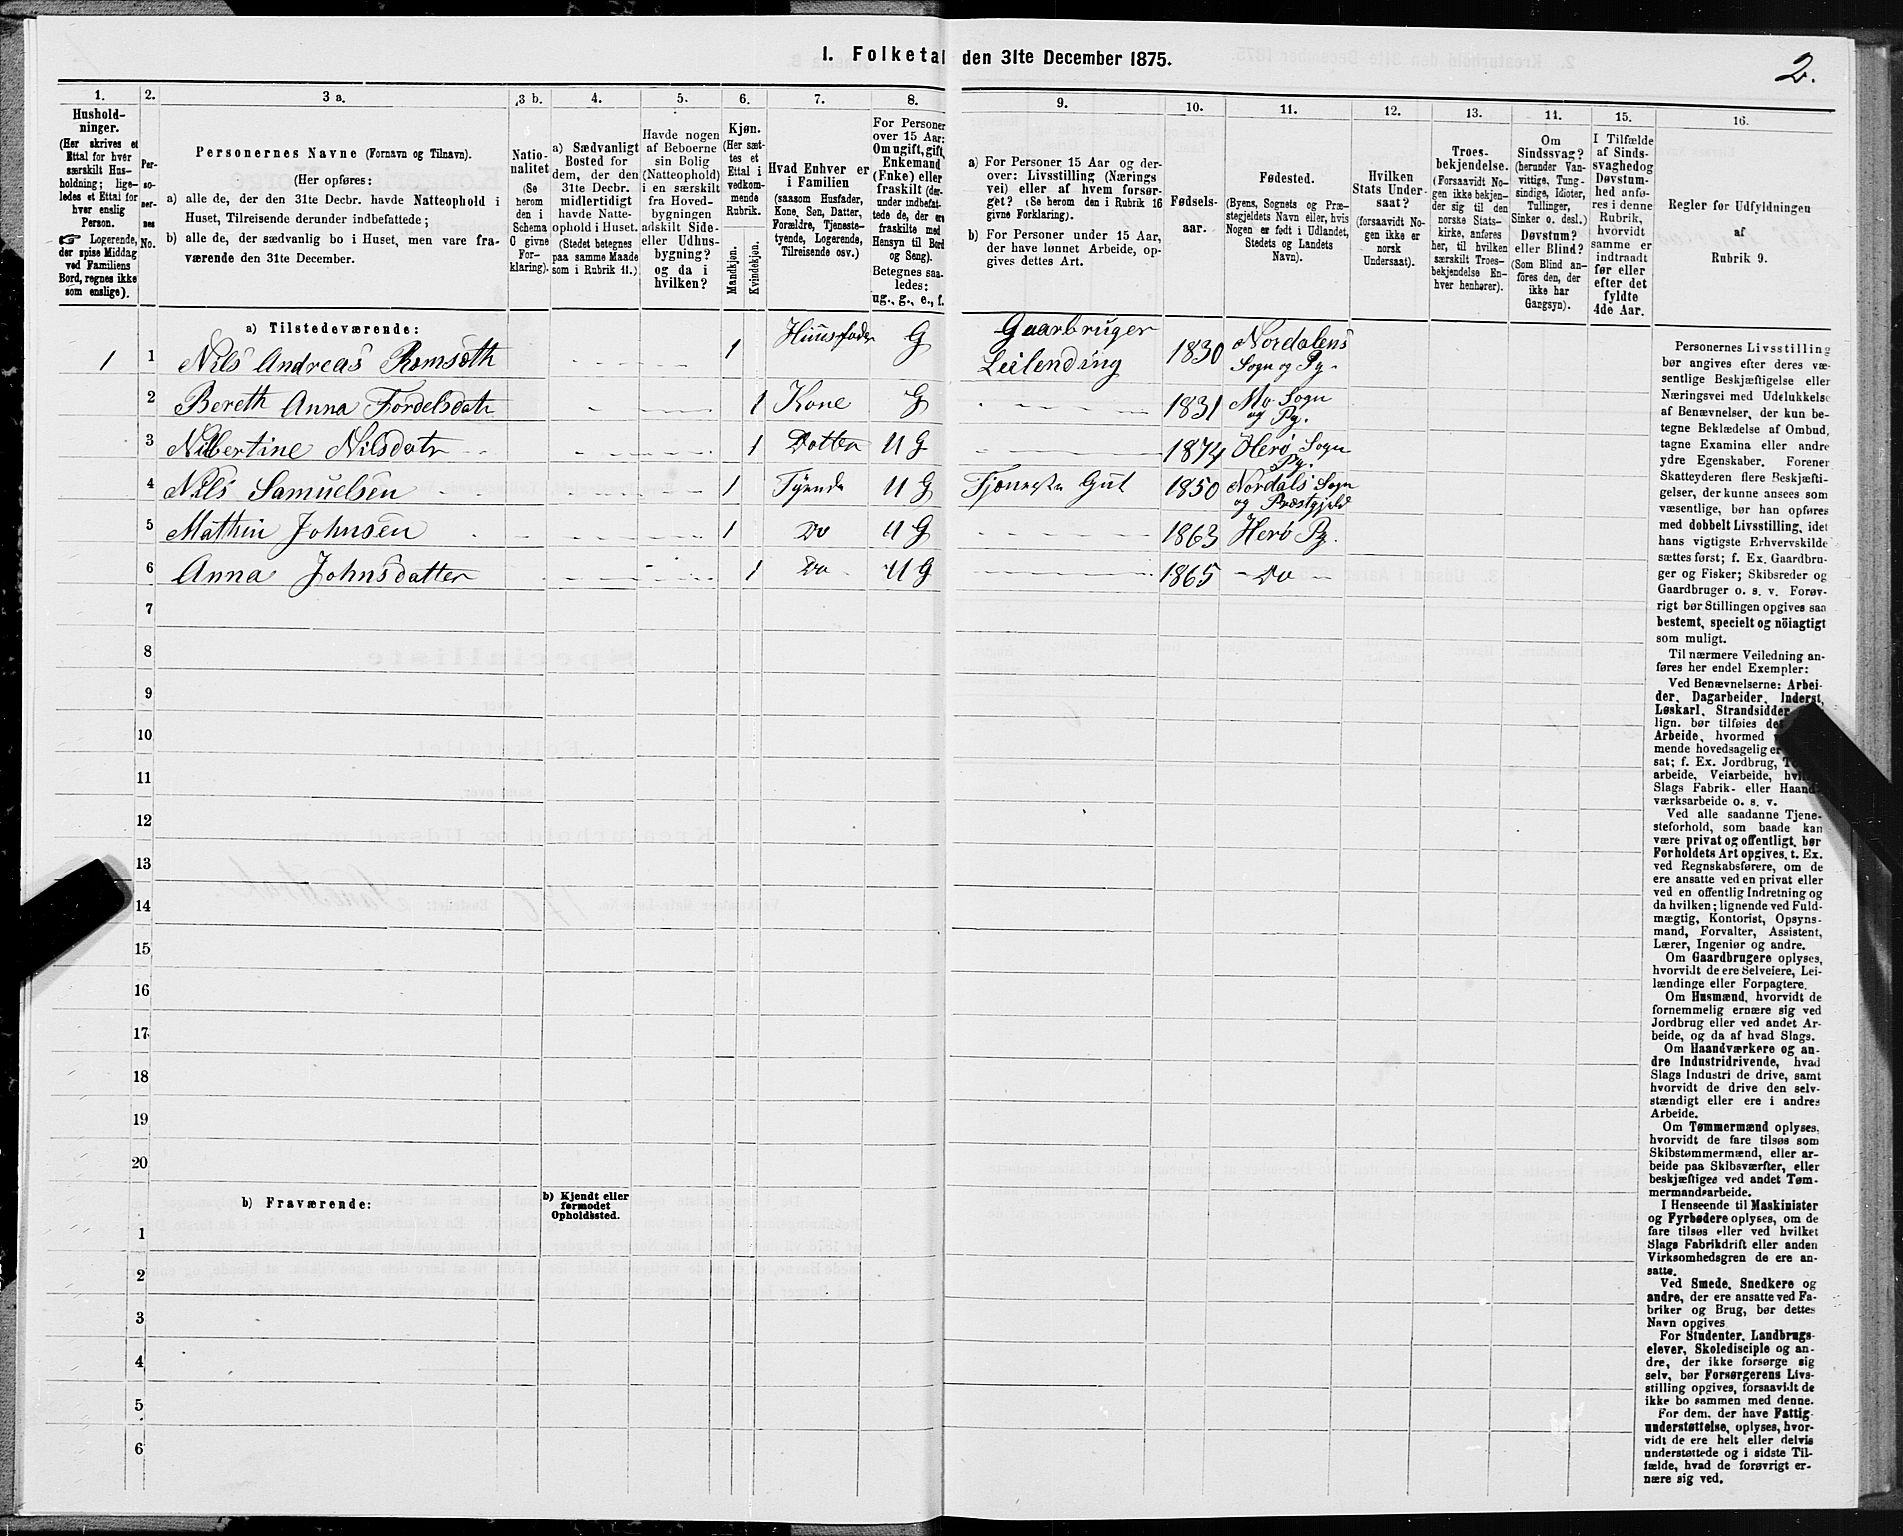 I. Folketal den 31te December 1875.
2.
1. 2. 3 a. 3 b. 4. 5. 6. 7. 8. 9. 10. 11. 12. 13. 14. 15. 16.
Hushold-
ninger.
(Her skrives et
Ettal for hver
særskilt Hus-
holdning; lige-
ledes et Ettal for
hver enslig
Person.
Logerende,
der spise Middag
ved Familiens
Bord, regnes ikke
som enslige).
Per-
so-
ner-
nes
No.
Personernes Navne (Fornavn og Tilnavn).
(Her opføres:
a) alle de, der den 31te Decbr. havde Natteophold i
Huset, Tilreisende derunder indbefattede;
b) alle de, der sædvanlig bo i Huset, men vare fra-
værende den 31te December.
Natio-
nalitet
(Se
herom
den i
Schema
C givne
For-
klaring).
a) Sædvanligt
Bosted for
dem, der den
31te Decbr.
midlertidigt
havde Natte-
ophold i Huset.
(Stedet betegnes
paa samme Maade
som i Rubrik 11.)
Havde nogen
af Beboerne
sin Bolig
(Natteophold)
i en særskilt
fra Hoved-
bygningen
adskilt Side-
eller Udhus-
bygning?
og da i
hvilken?
Kjøn.
(Her sæt-
tes et
Ettal i
vedkom-
mende
Rubrik.
Mandkjøn.
Kvindekjøn.
Hvad Enhver er
i Familien
(saasom Husfader,
Kone, Søn, Datter,
Forældre, Tjeneste-
tyende, Logerende,
Tilreisende osv.)
For Personer
over 15 Aar:
Om ugift, gift,
Enkemand
(Enke) eller
fraskilt (der-
under indbefat-
tede de, der ere
fraskilte med
Hensyn til Bord
og Seng).
Betegnes saa-
ledes:
ug., g., e., f.
a) For Personer 15 Aar og der-
over: Livsstilling (Nærings
vei) eller af hvem forsør-
get? (Se herom den i Rubrik 16
givne Forklaring).
b) For Personer under 15 Aar,
der have lønnet Arbeide, op-
gives dettes Art.
Fødsels-
aar.
Fødested.
(Byens, Sognets og Præ-
stegjeldets Navn eller, hvis
Nogen er født i Udlandet,
Stedets og Landets
Navn).
Hvilken
Stats Under-
saat?
(forsaavidt No-
gen ikke er
norsk
Undersaat).
Troes-
bekjendelse.
(Forsaavidt No-
gen ikke bekjen-
der sig til den
norske Stats-
kirke, anføres
her, til hvilken
særskilt Troes-
bekjendelse En-
hver henhører).
Om
Sindssvag?
(herunder Van-
vittige, Tung-
sindige, Idioter,
Tullinger,
Sinker o. desl.)
Døvstum?
eller Blind?
(Som Blind an-
føres den, der
ikke har
Gangsyn).
I Tilfælde
af Sinds-
svaghed og
Døvstum-
hed anfø-
res i denne
Rubrik,
hvorvidt
samme er
indtraadt
før eller
efter det
fyldte
4de Aar.
Regler for Udfyldningen
af
Rubrik 9.
a) Tilstedeværende:
1 1 Nils Andreas Romsoth 1 Huusfader G Gaarbruger Leilending 1830 Nordalens Sogn og Pg.
2 Bereth Anna Fordelsdatr 1 Kone G 1831 Mo Sogn og Pg.
3 Nilbertine Nilsdatr 1 Datter U G 1874 Herø Sogn Pg.
4 Nils Samuelsen 1 Tyende U G Tjeneste Gut 1850 Nordals Sogn og Præstgjeld
5 Mathin Johnsen 1 Do U G 1863 Herø Pg.
6 Anna Johnsdatter 1 Do U G 1865 Do
7
8
9
10
11
12
13
14
15
16
17
18
19
20
b) Fraværende:
b) Kjendt eller
formodet
Opholdssted.
1
2
3
4
5
6
Personernes Livsstilling
bør angives efter deres væ-
sentlige Beskjæftigelse eller
Næringsvei med Udelukkelse
af Benævnelser, der kun be-
tegne Beklædelse af Ombud,
tagne Examina eller andre
ydre Egenskaber. Forener
Skatteyderen flere Beskjæfti-
gelser, der kunne ansees som
væsentlige, bør han opføres
med dobbelt Livsstilling, idet
hans vigtigste Erhvervskilde
sættes først; f. Ex. Gaardbru-
ger og Fisker; Skibsreder og
Gaardbruger o. s. v. Forøv-
rigt bør Stillingen opgives saa
bestemt, specielt og nöiagtigt
som muligt.
Til nærmere Veiledning an-
føres her endel Exempler:
Ved Benævnelserne: Arbei-
der, Dagarbeider, Inderst,
Løskarl, Strandsidder
lign. bør tilføies
Arbeide, hvormed
mende hovedsagelig er
sat; f. Ex. Jordbrug,
arbeide, Veiarbeide,
Slags Fabrik- eller Haand-
værksarbeide o. s. v.
Ved alle saadanne Tjene-
steforhold, som baade kan
være privat og offentligt, bør
Forholdets Art opgives, t. Ex.
ved Regnskabsførere, om de
ere ansatte ved en privat eller
ved en offentlig Indretning og
da hvilken; lignende ved Fuld-
mægtig, Kontorist, Opsyns-
mand, Forvalter, Assistent,
Lærer, Ingeniør og andre.
Om Gaardbrugere oplyses,
hvorvidt de ere Selveiere, Lei-
lændinge eller Forpagtere.
Om Husmænd, hvorvidt de
fornemmelig ernære sig ved
Jordbrug eller ved andet Ar-
beide, og da af hvad Slags.
Om Haandværkere og an-
dre Industridrivende, hvad
Slags Industri de drive, samt
hvorvidt de drive den selv-
stændigt eller ere i andres
Arbeide.
Om Tømmermænd oplyses,
hvorvidt de fare tilsøs som
Skibstømmermænd, eller ar-
beide paa Skibsværfter, eller
beskjæftiges ved andet Tøm-
mermandsarbeide.
I Henseende til Maskinister
og Fyrbødere oplyses, om de
fare tilsøs eller ved hvilket
Slags Fabrikdrift eller anden
Virksomhedsgren de ere an-
satte.
Ved Smede, Snedkere og
andre, der ere ansatte ved Fa-
briker og Brug, bør dettes
Navn opgives
For Studenter, Landbrugs-
elever, Skoledisciple og an-
dre, der ikke forsørge sig
selv, bør Forsørgerens Livs-
stilling opgives, forsaavidt de
ikke bo sammen med denne.
For dem, der have Fattig-
understøttelse, oplyses, hvor-
vidt de ere helt eller delvis
understøttede og i sidste Til-
fælde, hvad de forøvrigt er-
nære sig ved.